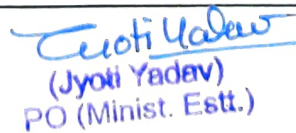 Jyoti Yadav
(Jyoti Yadav)
PO (Minist. Estt.)